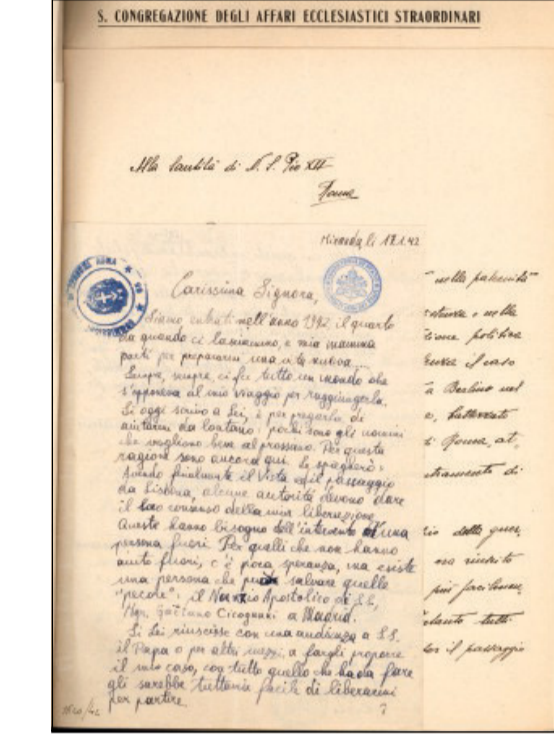 S. CONGREGAZIONE DEGLI AFFARI ECCLESIASTICI STRAORDINARI
Alla Santità di N. S. Pio XII
Roma
Miranda, li 17.1.42
Carissima Signora,
Siamo entrati nell'anno 1942, il quarto
da quando ci lasciammo, e mia mamma
partì per prepararmi una vita nuova...
Sempre, sempre, ci fu tutto un mondo che
s'opponeva al mio viaggio per raggiungerla.
Se oggi scrivo a Lei, è per pregarla di
aiutarmi da lontano: pochi sono gli uomini
che vogliono bene al prossimo. Per questa
ragione sono ancora qui. Le spiegherò:
Avendo finalmente il Visto ed il passaggio
da Lisbona, alcune autorità devono dare
il loro consenso della mia liberazione.
Queste hanno bisogno dell'intervento d'una
persona fuori. Per quelli che non hanno
aiuto fuori, c'è poca speranza, ma esiste
una persona che può salvare quelle
"pecore": il Nunzio Apostolico di S.S.,
Mgr. Gaetano Cicognani a Madrid.
Se Lei riuscisse con una audienza a S.S.
il Papa o per altri mezzi, a fargli proporre
il mio caso, con tutto quello che ha da fare
gli sarebbe tuttavia facile di liberarmi
per partire.
"nella paternità"
e nella
politica
il caso
a Berlino nel
battezzato
di Roma, at-
di
delle guer,
riuscito
più facilmen
tutti
il passaggio